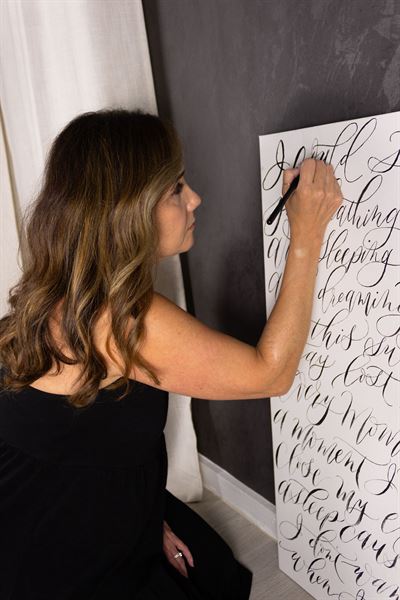 I could s
athing
sleeping
dreaming
this su
ay lost
very Mom
a moment I
close my e
asleep caus
I don't wan
when I